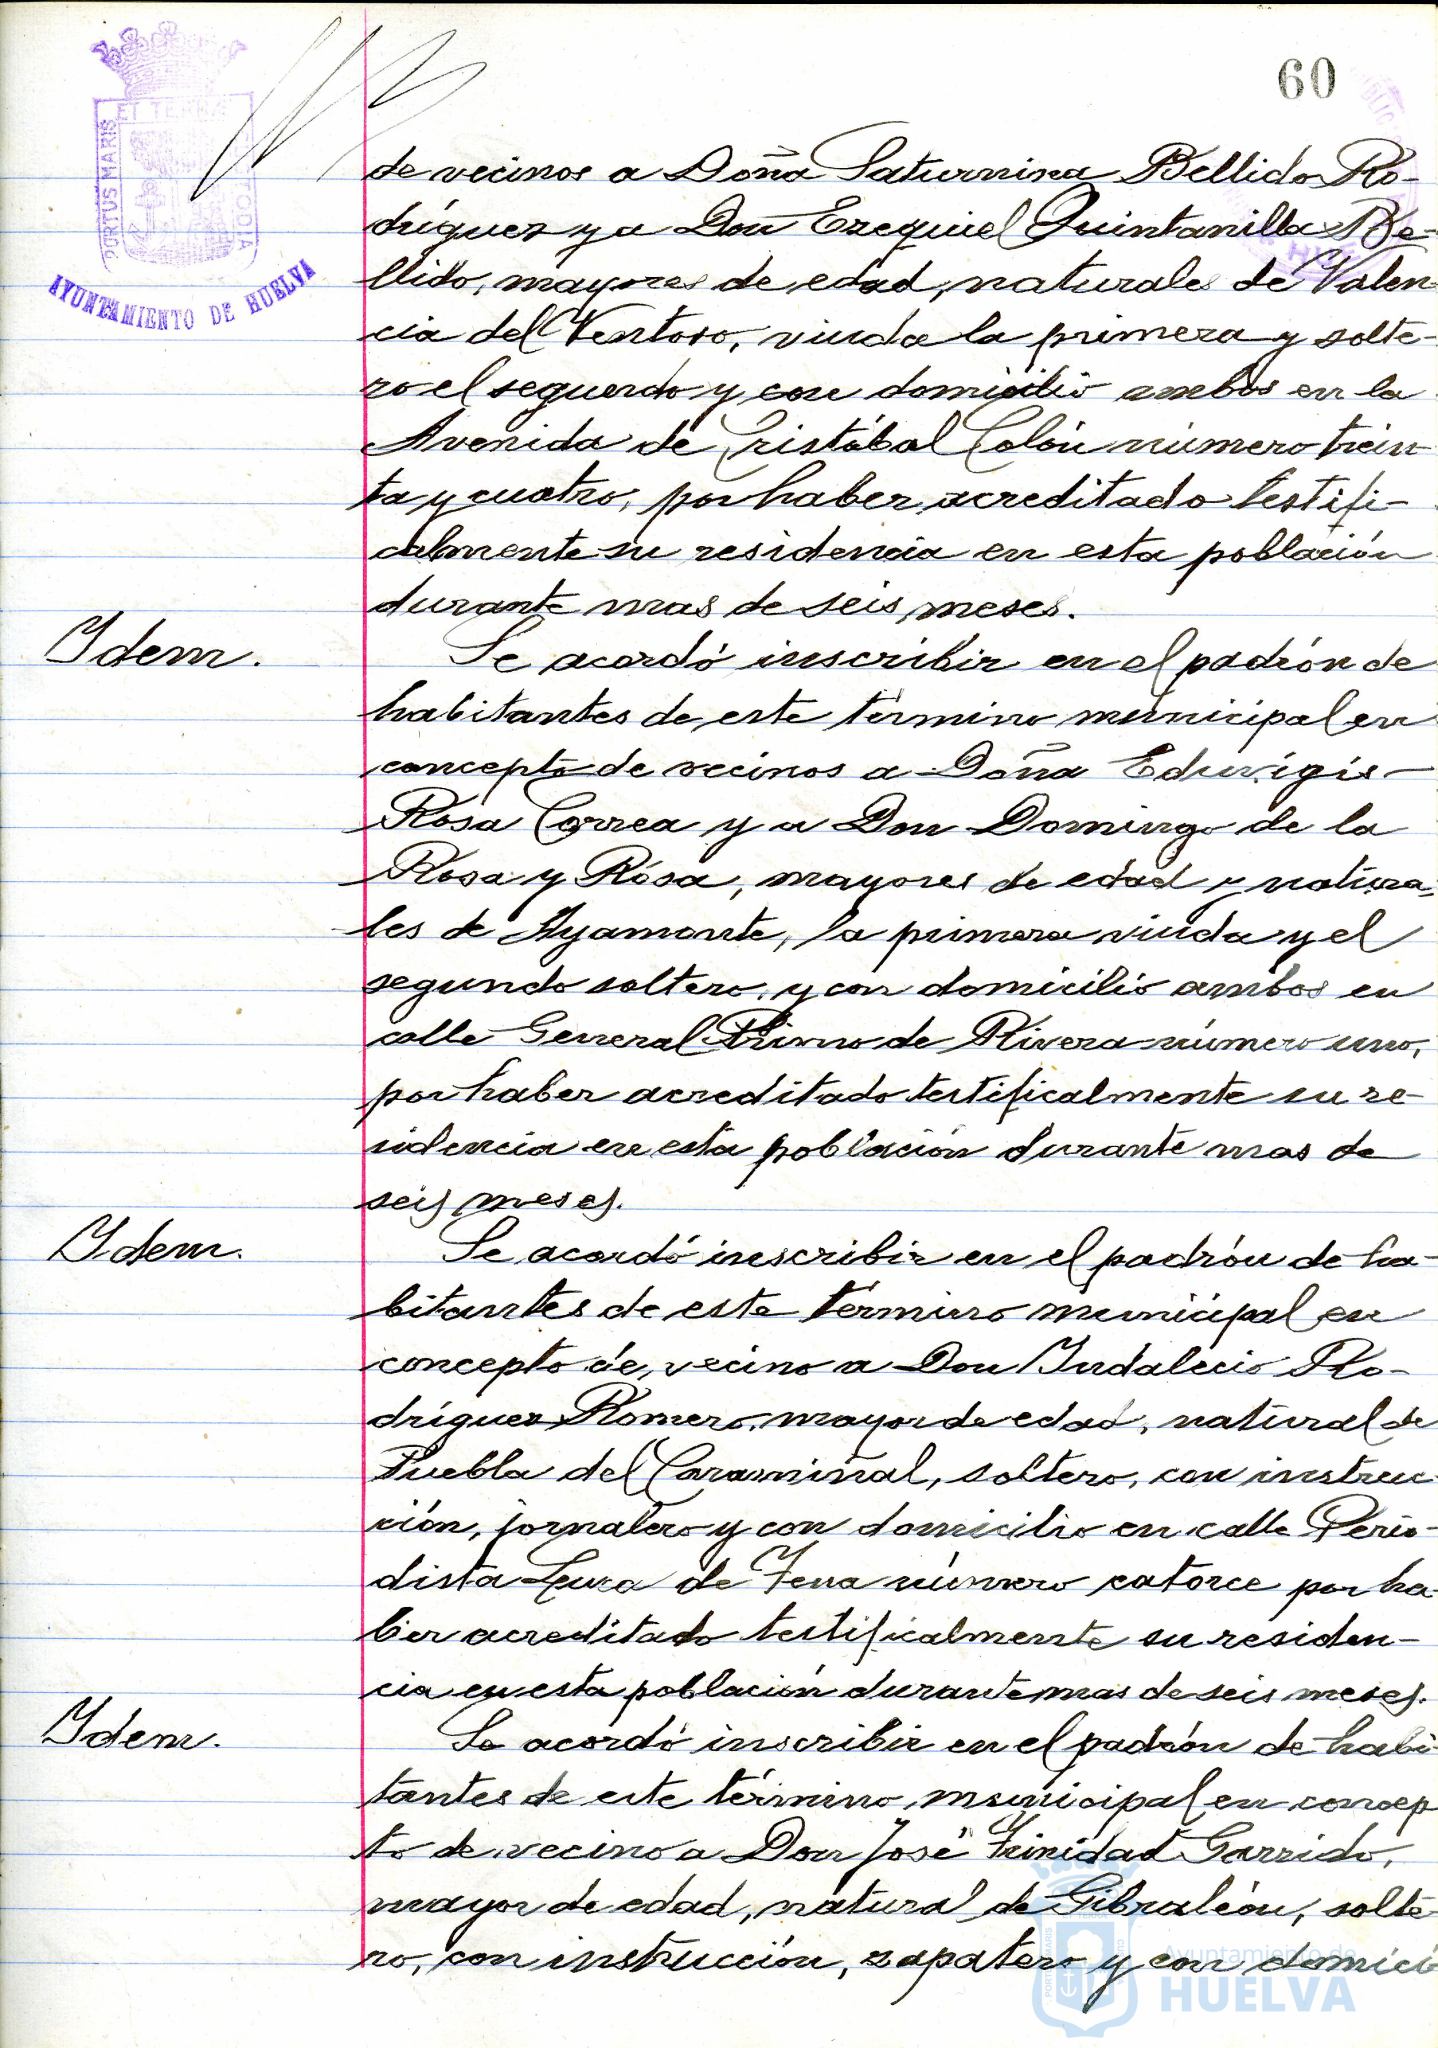 60
PORTUS MARIS ET TERRAE CUSTODIA
AYUNTAMIENTO DE HUELVA
de vecinos a Doña Saturnina Bellido Ro-
dríguez y a Don Ezequiel Quintanilla Be-
llido, mayores de edad, naturales de Valen
cia del Ventoso, viuda la primera y solte-
ro el segundo y con domicilio ambos en la
Avenida de Cristóbal Colón número trein
ta y cuatro, por haber acreditado testifi-
calmente su residencia en esta población
durante mas de seis meses.
Idem.
Se acordó inscribir en el padrón de
habitantes de este término municipal en
concepto de vecinos a Doña Eduvigis
Rosa Correa y a Don Domingo de la
Rosa y Rosa, mayores de edad y natura
les de Ayamonte, la primera viuda y el
segundo soltero, y con domicilio ambos en
calle General Primo de Rivera número uno,
por haber acreditado testificalmente su re-
sidencia en esta población durante mas de
seis meses.
Idem.
Se acordó inscribir en el padrón de ha-
bitantes de este término municipal en
concepto de vecino a Don Indalecio Ro-
dríguez Romero, mayor de edad, natural de
Puebla del Caramiñal, soltero, con instruc
ción, jornalero y con domicilio en calle Perio-
dista Luca de Tena número catorce por ha
ber acreditado testificalmente su residen-
cia en esta población durante mas de seis meses.
Idem.
Se acordó inscribir en el padrón de habi
tantes de este término municipal en concep
to de vecino a Don José Trinidad Garrido,
mayor de edad, natural de Gibraleón, solte
ro, con instrucción, zapatero y con domici
Ayuntamiento de
HUELVA